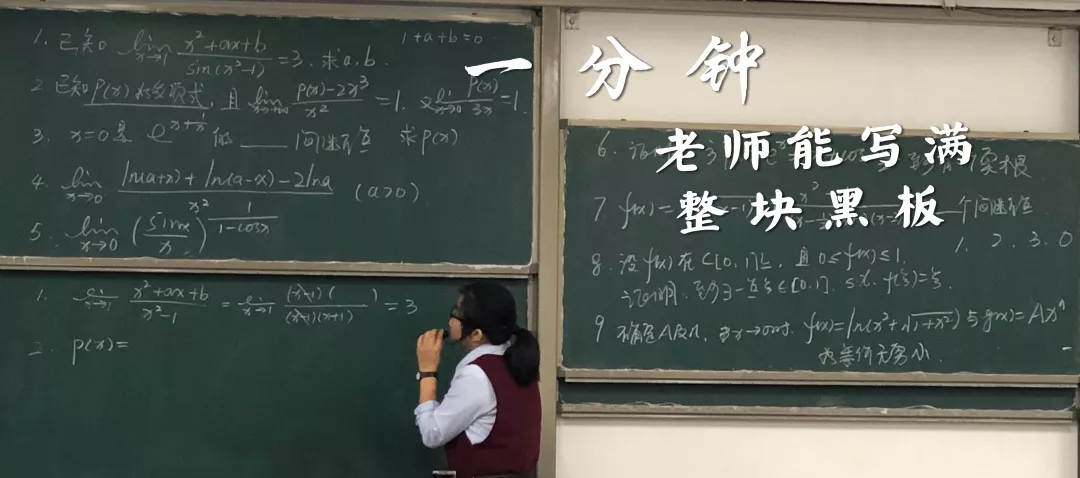 1. 已知 lim x→1 (x²+ax+b)/(sin(x²-1)) = 3. 求 a, b.
1+a+b=0
2. 已知 P(x) 为多项式, 且 lim x→∞ (P(x)-2x³)/x² = 1. 又 lim x→0 P(x)/3x = 1
求 p(x)
3. x=0 是 e^(x+1/x) 的 ___ 间断点
4. lim x→0 (ln(a+x)+ln(a-x)-2lna)/x² (a>0)
5. lim x→0 (sinx/x)^(1/(1-cosx))
1. lim x→1 (x²+ax+b)/(x²-1) = lim x→1 ((x-1)( ))/((x-1)(x+1)) = 3
2. p(x)=
一分钟
老师能写满
整块黑板
6. 证 3 实根
7. f(x)= 个间断点
1. 2. 3. 0
8. 设 f(x) 在 C[0,1]上, 且 0≤f(x)≤1.
证明: 至少∃一点ξ∈[0,1], s.t. f(ξ)=ξ
9. 确定A及n, 当x→0时, f(x)=ln(x²+√(1+x²)) 与 g(x)=Axⁿ
为等价无穷小